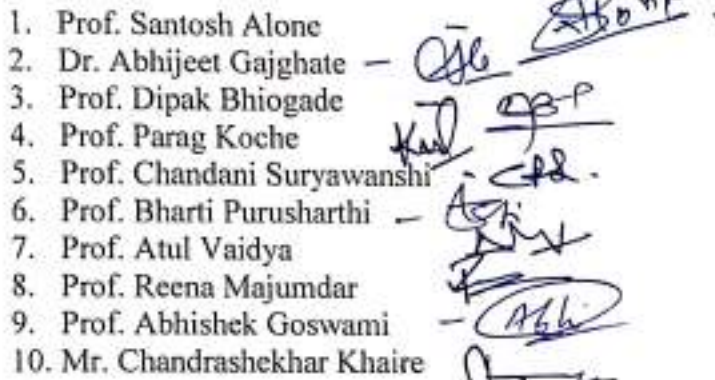 1. Prof. Santosh Alone
2. Dr. Abhijeet Gajghate –
3. Prof. Dipak Bhiogade
4. Prof. Parag Koche
5. Prof. Chandani Suryawanshi -
6. Prof. Bharti Purusharthi –
7. Prof. Atul Vaidya
8. Prof. Reena Majumdar
9. Prof. Abhishek Goswami –
10. Mr. Chandrashekhar Khaire